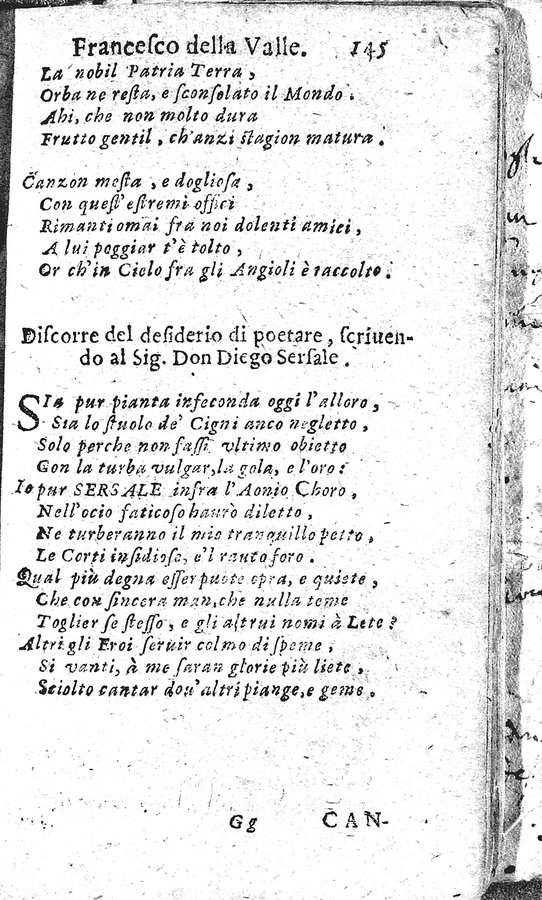 Franceſco della Valle. 145
La nobil Patria Terra,
Orba ne reſta, e ſconſolato il Mondo.
Ahi, che non molto dura
Frutto gentil, ch'anzi ſtagion matura.
Canzon meſta, e doglioſa,
Con queſt'eſtremi offici
Rimanti omai frà noi dolenti amici,
A lui poggiar t'è tolto,
Or ch'in Cielo fra gli Angioli è raccolto.
Diſcorre del deſiderio di poetare, ſcriuen-
do al Sig. Don Diego Serſale.
SIa pur pianta infeconda oggi l'alloro,
Sta lo ſtuolo de' Cigni anco negletto,
Solo perche non faſſi vltimo obietto
Gon la turba vulgar, la gola, e l'oro:
Io pur SERSALE infra l'Aonio Choro,
Nell'ocio faticoso hauro diletto,
Ne turberanno il mio tranquillo petto,
Le Corti inſidioſe, e'l rauto foro.
Qual più degna eſſer puote opra, e quiete,
Che con ſincera man, che nulla teme
Toglier ſe ſteſſo, e gli altrui nomi à Lete?
Altri gli Eroi ſeruir colmo di ſpeme,
Si vanti, à me ſaran glorie più liete,
Sciolto cantar dou'altri piange, e geme.
Gg CAN-